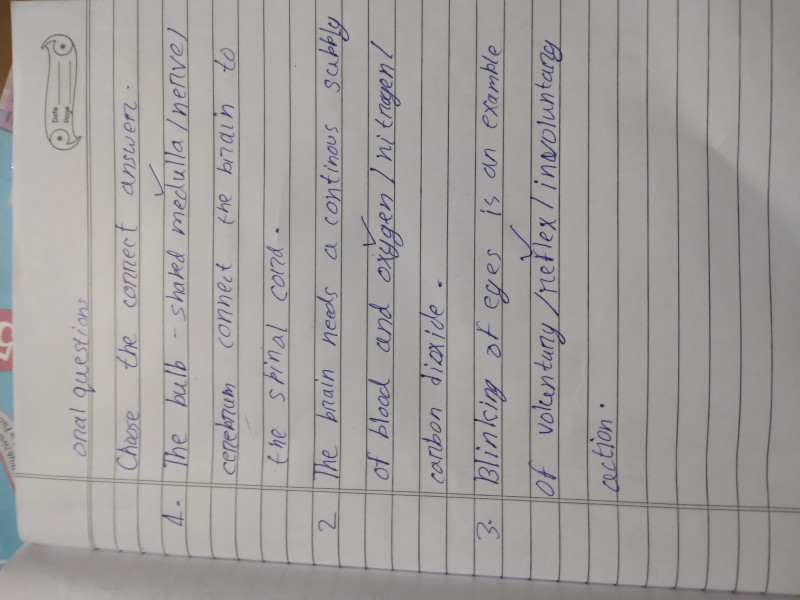 Date
Page
oral questions
Choose the correct answer.
1. The bulb - shared medulla / nerve /
cerebrum connect the brain to
the spinal cord.
2 The brain needs a continous subbly
of blood and oxygen / nitrogen /
carbon dioxide.
3. Blinking of eyes is an examble
of voluntary / reflex / involuntary
action.